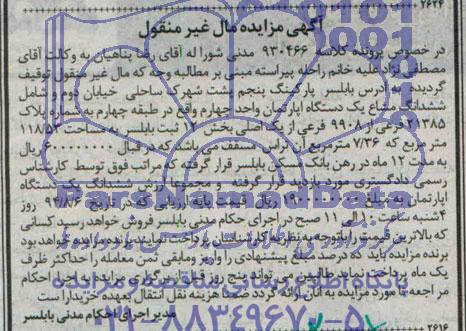 ۲۶۲۴
آگهی مزایده مال غیر منقول
در خصوص پرونده کلاسه ۹۳۰۴۶۶ مدنی شورا له آقای رضا پناهیان به وکالت آقای
مصطفی نژاد علیه خانم راحله پیراسته مبنی بر مطالبه وجه که مال غیر منقول توقیف
گردیده به آدرس بابلسر پارکینگ پنجم پشت شهرک ساحلی خیابان دوم و شامل
ششدانگ مشاع یک دستگاه آپارتمان واحد چهارم واقع در طبقه چهارم به شماره پلاک
۲۱۳۸۵ فرعی از ۹۹۰۸ فرعی از یک اصلی بخش ثبت بابلسر به مساحت ۱۱۸/۵۳
متر مربع که ۷/۳۶ مترمربع آن تراس مسقف می باشد که در قبال ریال
به مدت ۱۲ ماه در رهن بانک مسکن بابلسر قرار گرفته که مراتب فوق توسط کارشناس
رسمی دادگستری مورد بازدید قرار گرفته و مجموعا ارزش ششدانگ یک دستگاه
آپارتمان به مبلغ ریال قیمت پایه ارزیابی که در تاریخ روز
۴شنبه ساعت ۱۰ الی ۱۱ صبح در اجرای حکام مدنی بابلسر فروش خواهد رسید کسانی
که بالاترین قیمت را باتوجه به نظریه کارشناسان پرداخت نماید برنده مزایده خواهد بود
برنده مزایده باید ده درصد مبلغ پیشنهادی را واریز ومابقی ثمن معامله را حداکثر ظرف
یک ماه پرداخت نماید طالبین می توانند پنج روز قبل از برگزاری مزایده به اجرا احکام
مراجعه تا مورد مزایده به آنان ارائه گردد ضمنا هزینه نقل انتقال بعهده خریدار است
مدیر اجرای احکام مدنی بابلسر
۲۶۱۶
پایگاه اطلاع رسانی مناقصه و مزایده
ParsNamadData
۰۲۱-۸۸۳۴۹۶۷۰-۵